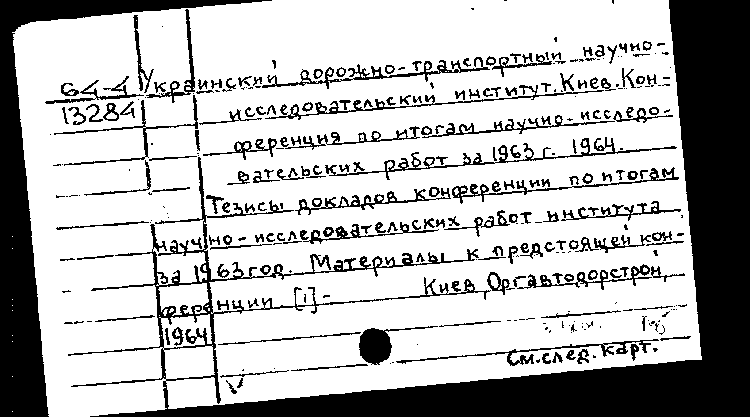 64-4
13284
Украинский дорожно-транспортный научно-
исследовательский институт. Киев. Кон-
ференция по итогам научно-исследо-
вательских работ за 1963 г. 1964.
Тезисы докладов конференции по итогам
научно-исследовательских работ института
за 1963 год. Материалы к предстоящей кон-
ференции [1]- Киев, Оргавтодорстрой,
1964
См. след. карт.